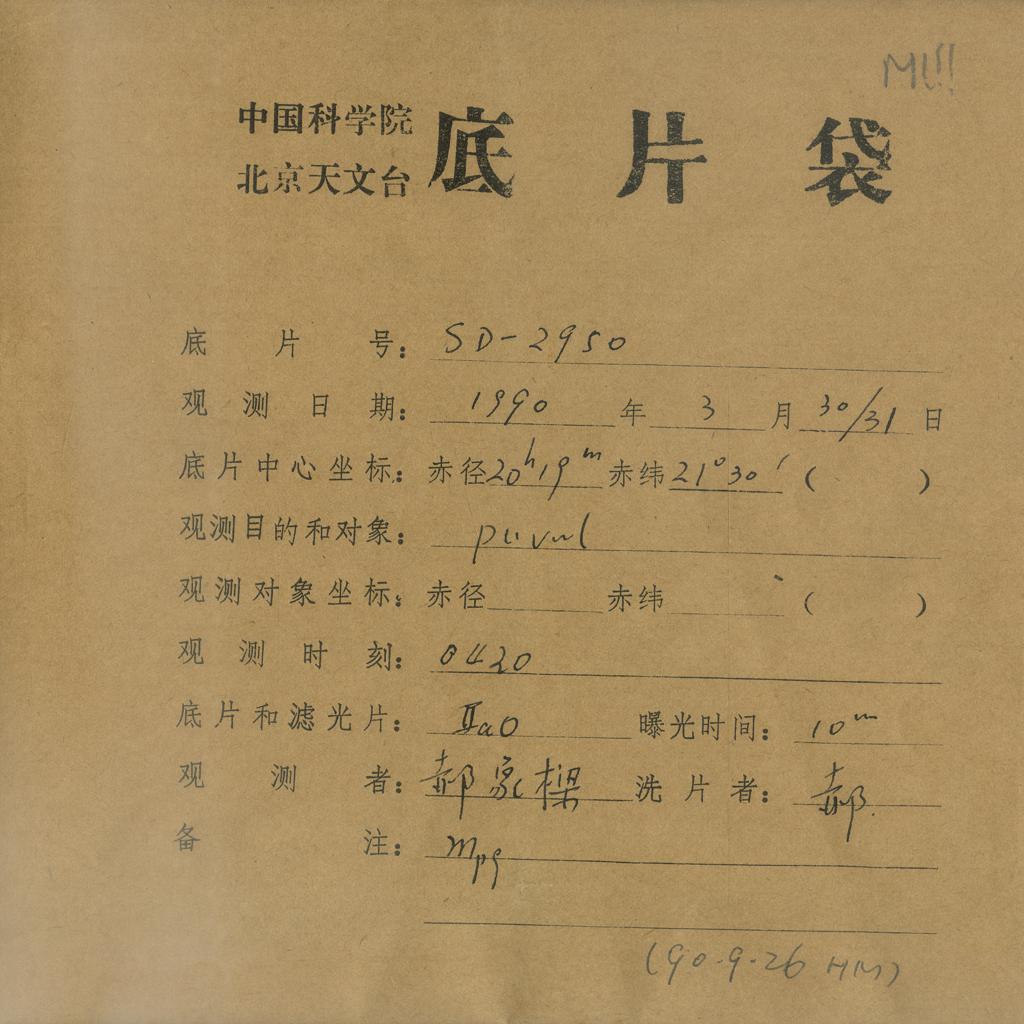 M!!!
中国科学院
北京天文台
底片袋
底片号：SD-2950
观测日期：1990年3月30/31日
底片中心坐标：赤径20h19m赤纬21°30′（ ）
观测目的和对象：
观测对象坐标：赤径 赤纬 （ ）
观测时刻：0420
底片和滤光片：IIaO 曝光时间：10m
观测者：郝象樑 洗片者：郝
备注：mpg
(90.9.26 HM)